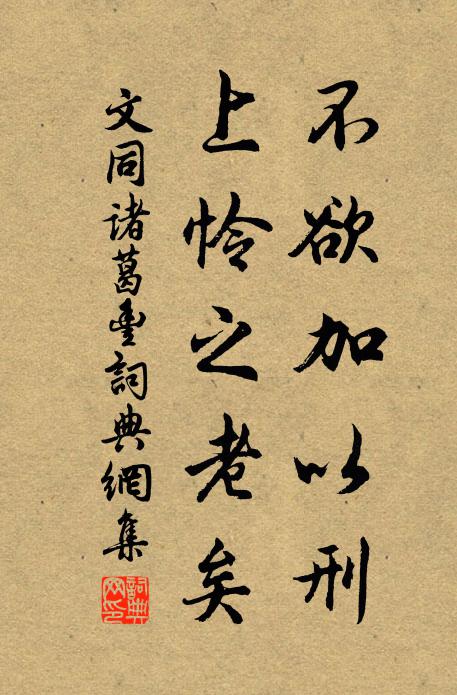 不欲加以刑
上怜之老矣
文同诸葛豐詞典網集
詞典網印